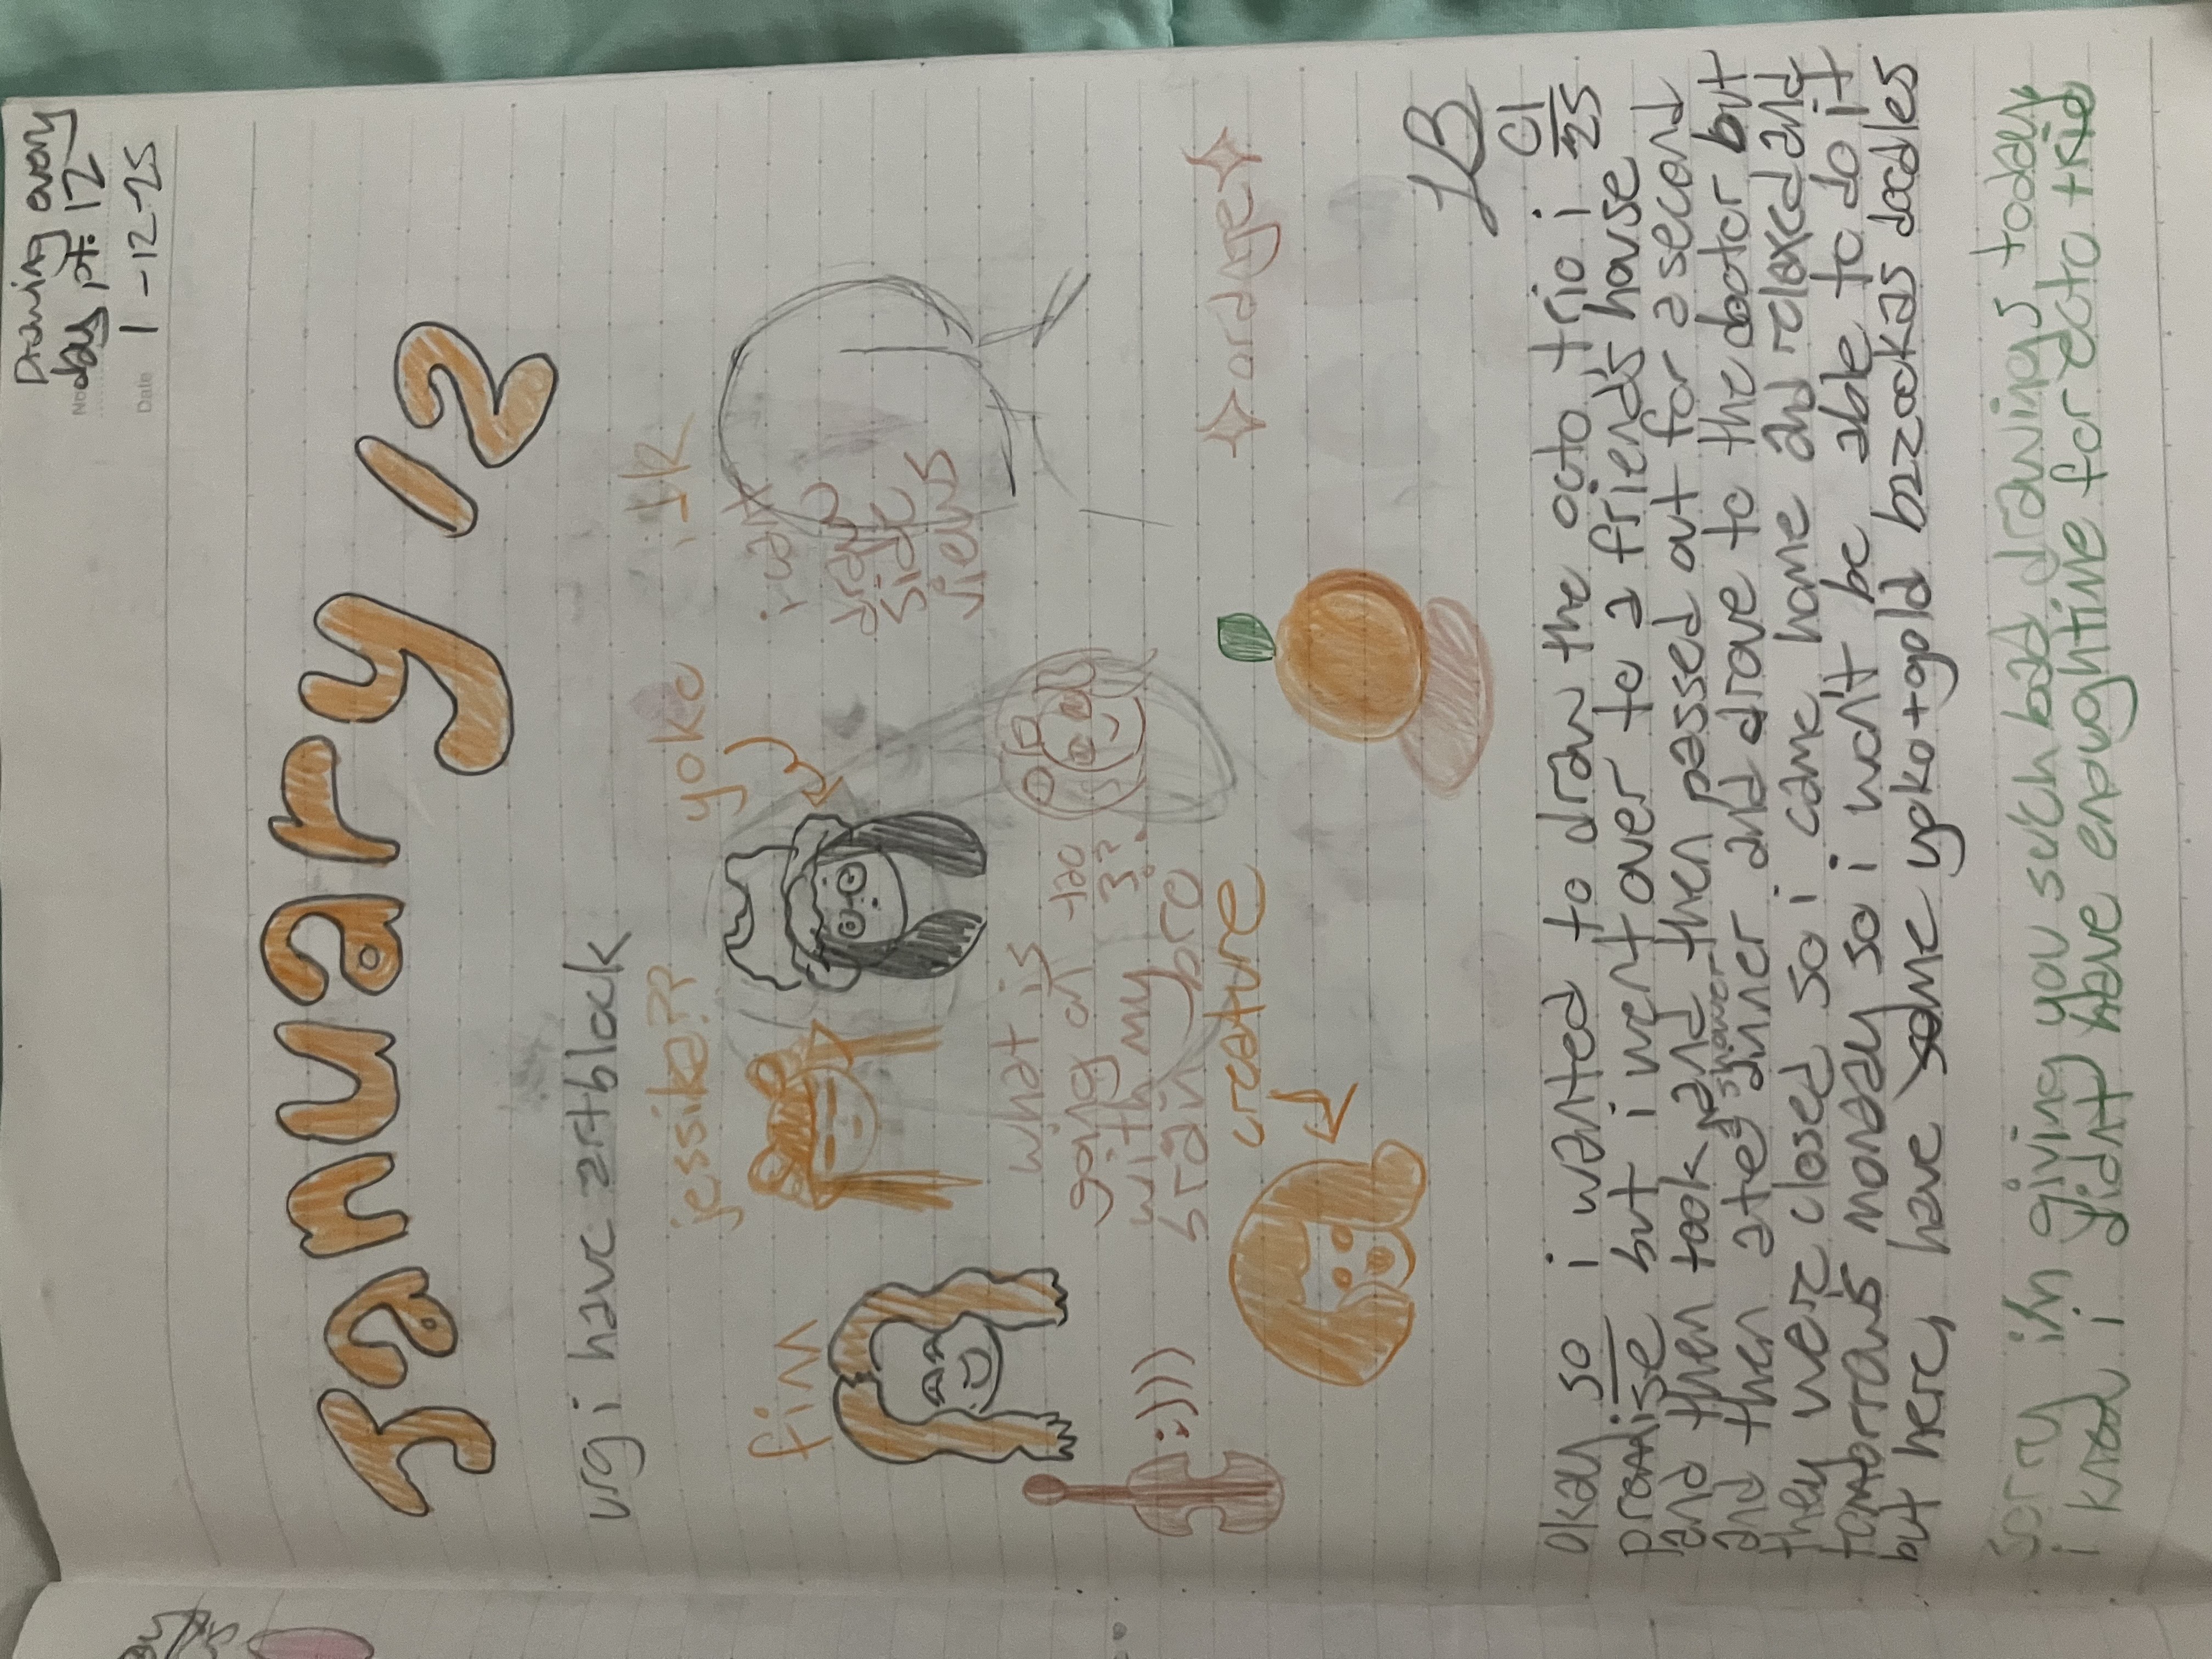 Drawing every
No. day pt. 12
Date 1-12-25
January 12
urg i have artblock
jessika??
yoko
idk
finn
i cant
draw
side
views
what is
going on
with my
brain bro
tao
??
:)))
creature
orange
JB
01
25
okay so i wanted to draw the octo trio i
promise but i went over to a friend's house
and then took a shower and then passed out for a second
and then ate dinner and drove to the doctor but
they were closed so i came home and relaxed and
tomorrow's monday so i won't be able to do it
but here, have some yoko+gold bazookas doodles
sorry i'm giving you such bad drawings today,
i know i didn't have enough time for octo trio